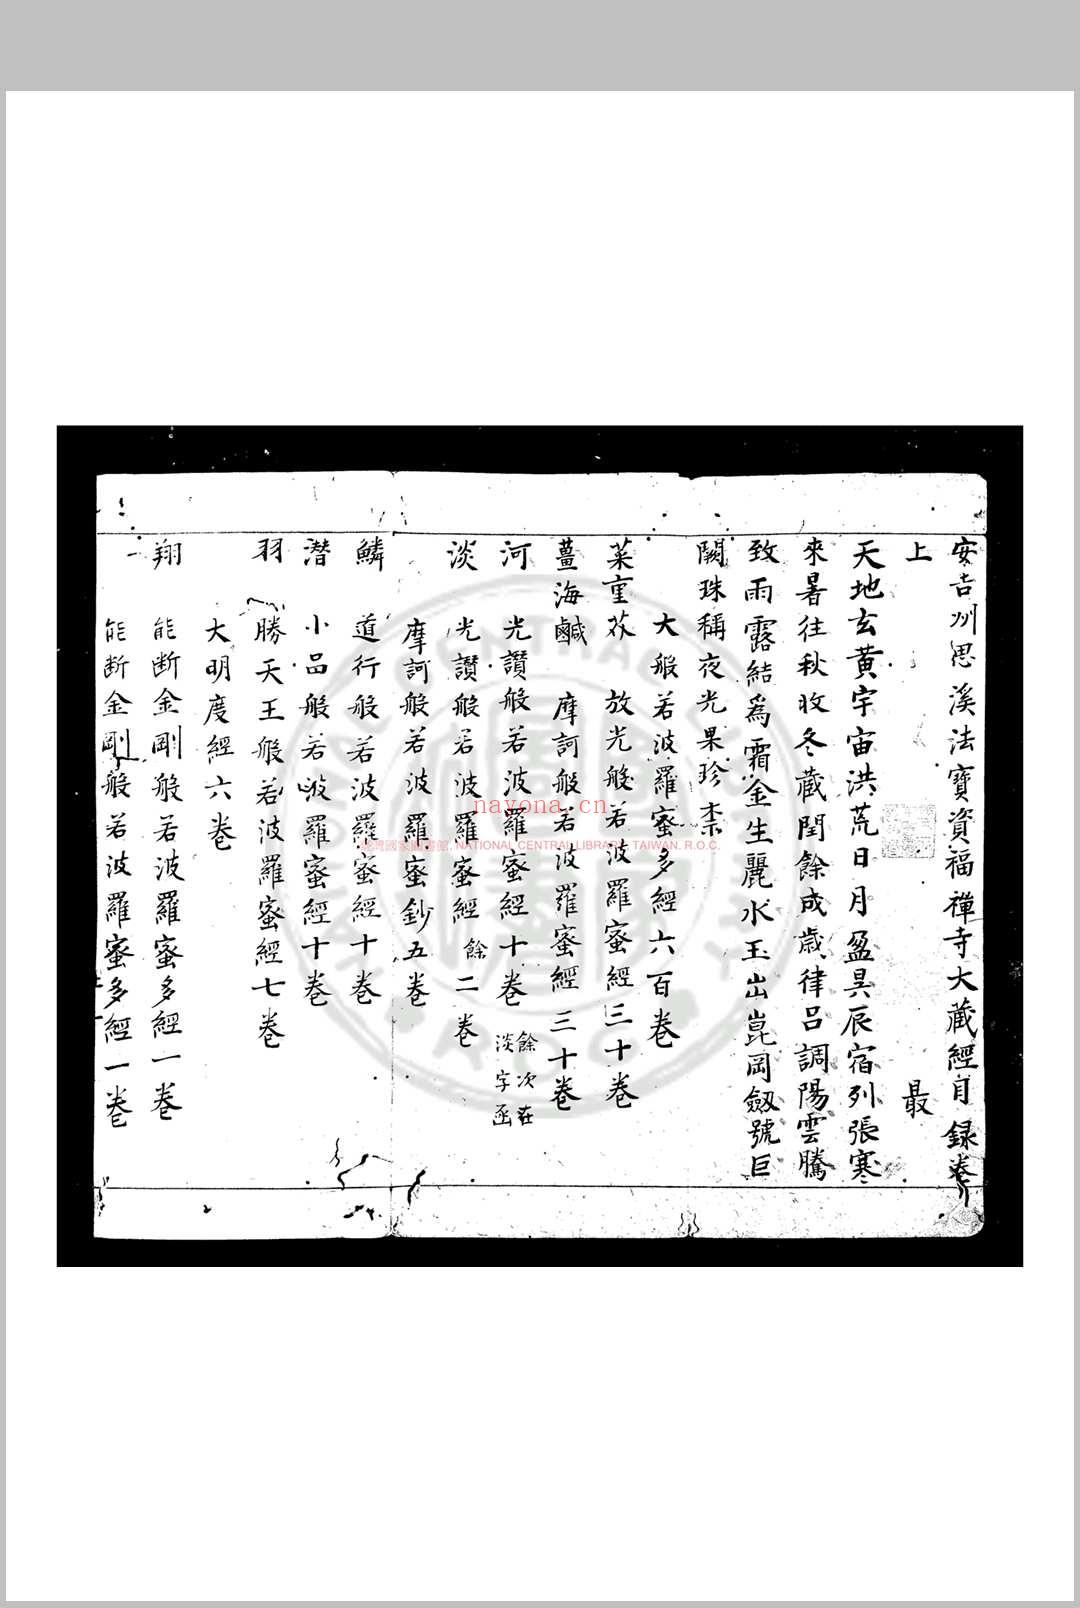 安吉州思溪法寶資福禪寺大藏經目録卷
上 最
天地玄黃宇宙洪荒日月盈昃辰宿列張寒
來暑往秋收冬藏閏餘成歲律吕調陽雲騰
致雨露結爲霜金生麗水玉出崑岡劔號巨
闕珠稱夜光果珍柰
大般若波羅蜜多經六百卷
菜重芥 放光般若波羅蜜經三十卷
薑海鹹 摩訶般若波羅蜜經三十卷
河 光讚般若波羅蜜經十卷 餘次在淡字函
淡 光讚般若波羅蜜經餘二卷
摩訶般若波羅蜜鈔五卷
鱗 道行般若波羅蜜經十卷
潛 小品般若波羅蜜經十卷
羽 勝天王般若波羅蜜經七卷
大明度經六卷
翔 能断金剛般若波羅蜜多經一卷
能断金剛般若波羅蜜多經一卷
nayona.cn
臺灣國家圖書館, NATIONAL CENTRAL LIBRARY, TAIWAN. R.O.C.